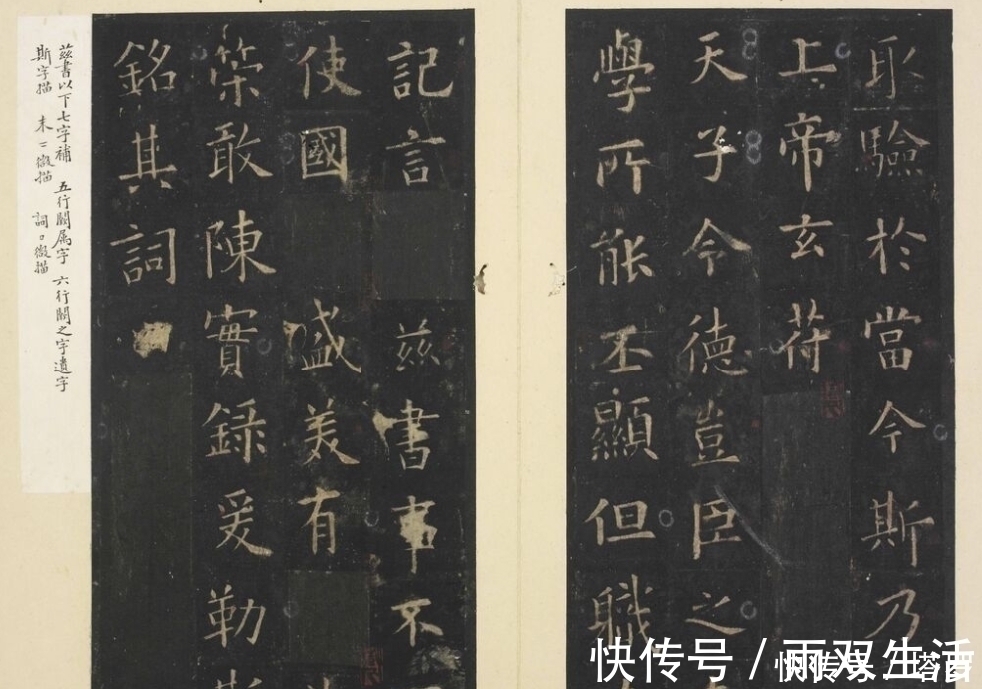 取驗於當今斯乃
上帝玄符
天子令德豈臣之
學所能丕顯但職
記言
茲書事不
使國
盛美有
策敢陳實錄爰勒
銘其詞
茲書以下七字補 五行闕属字 六行闕之字遺字
斯字描 未二微描 詞口微描
快传号 / 雨双生活